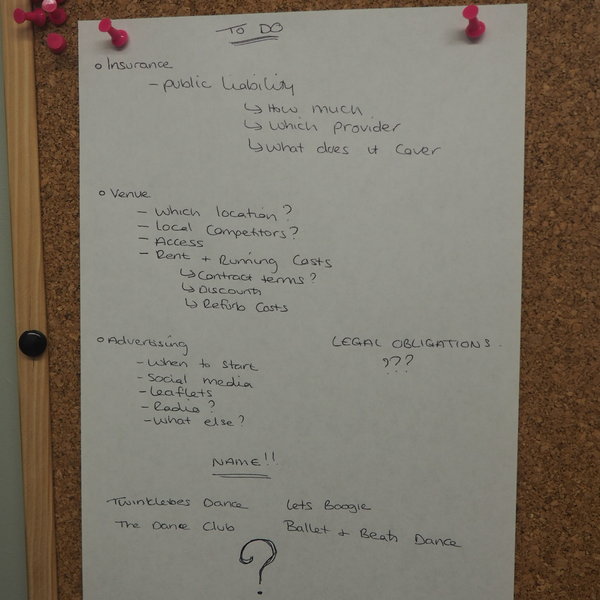 TO DO
o Insurance
- public liability
↳ How much
↳ which provider
↳ what does it cover
o Venue
- Which location?
- Local Competitors?
- Access
- Rent + Running Costs
↳ Contract terms?
↳ Discount
↳ Refurb Costs
o Advertising
- When to start
- Social media
- Leaflets
- Radio?
- What else?
LEGAL OBLIGATIONS.
???
NAME!!
Twinkletoes Dance
Lets Boogie
The Dance Club
Ballet + Beats Dance
?